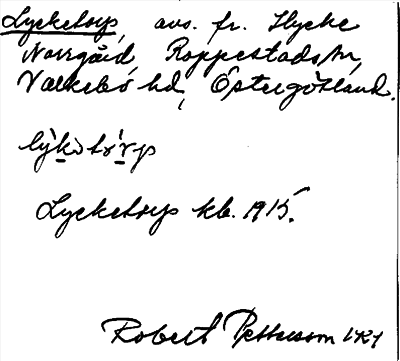 Lycketorp, avs. fr. Hycke
Norrgård, Rappestads sn,
Valkebo hd, Östergötland.
lỳkətɔ̀rp
Lycketorp kb. 1915.
Robert Pettersson 1921